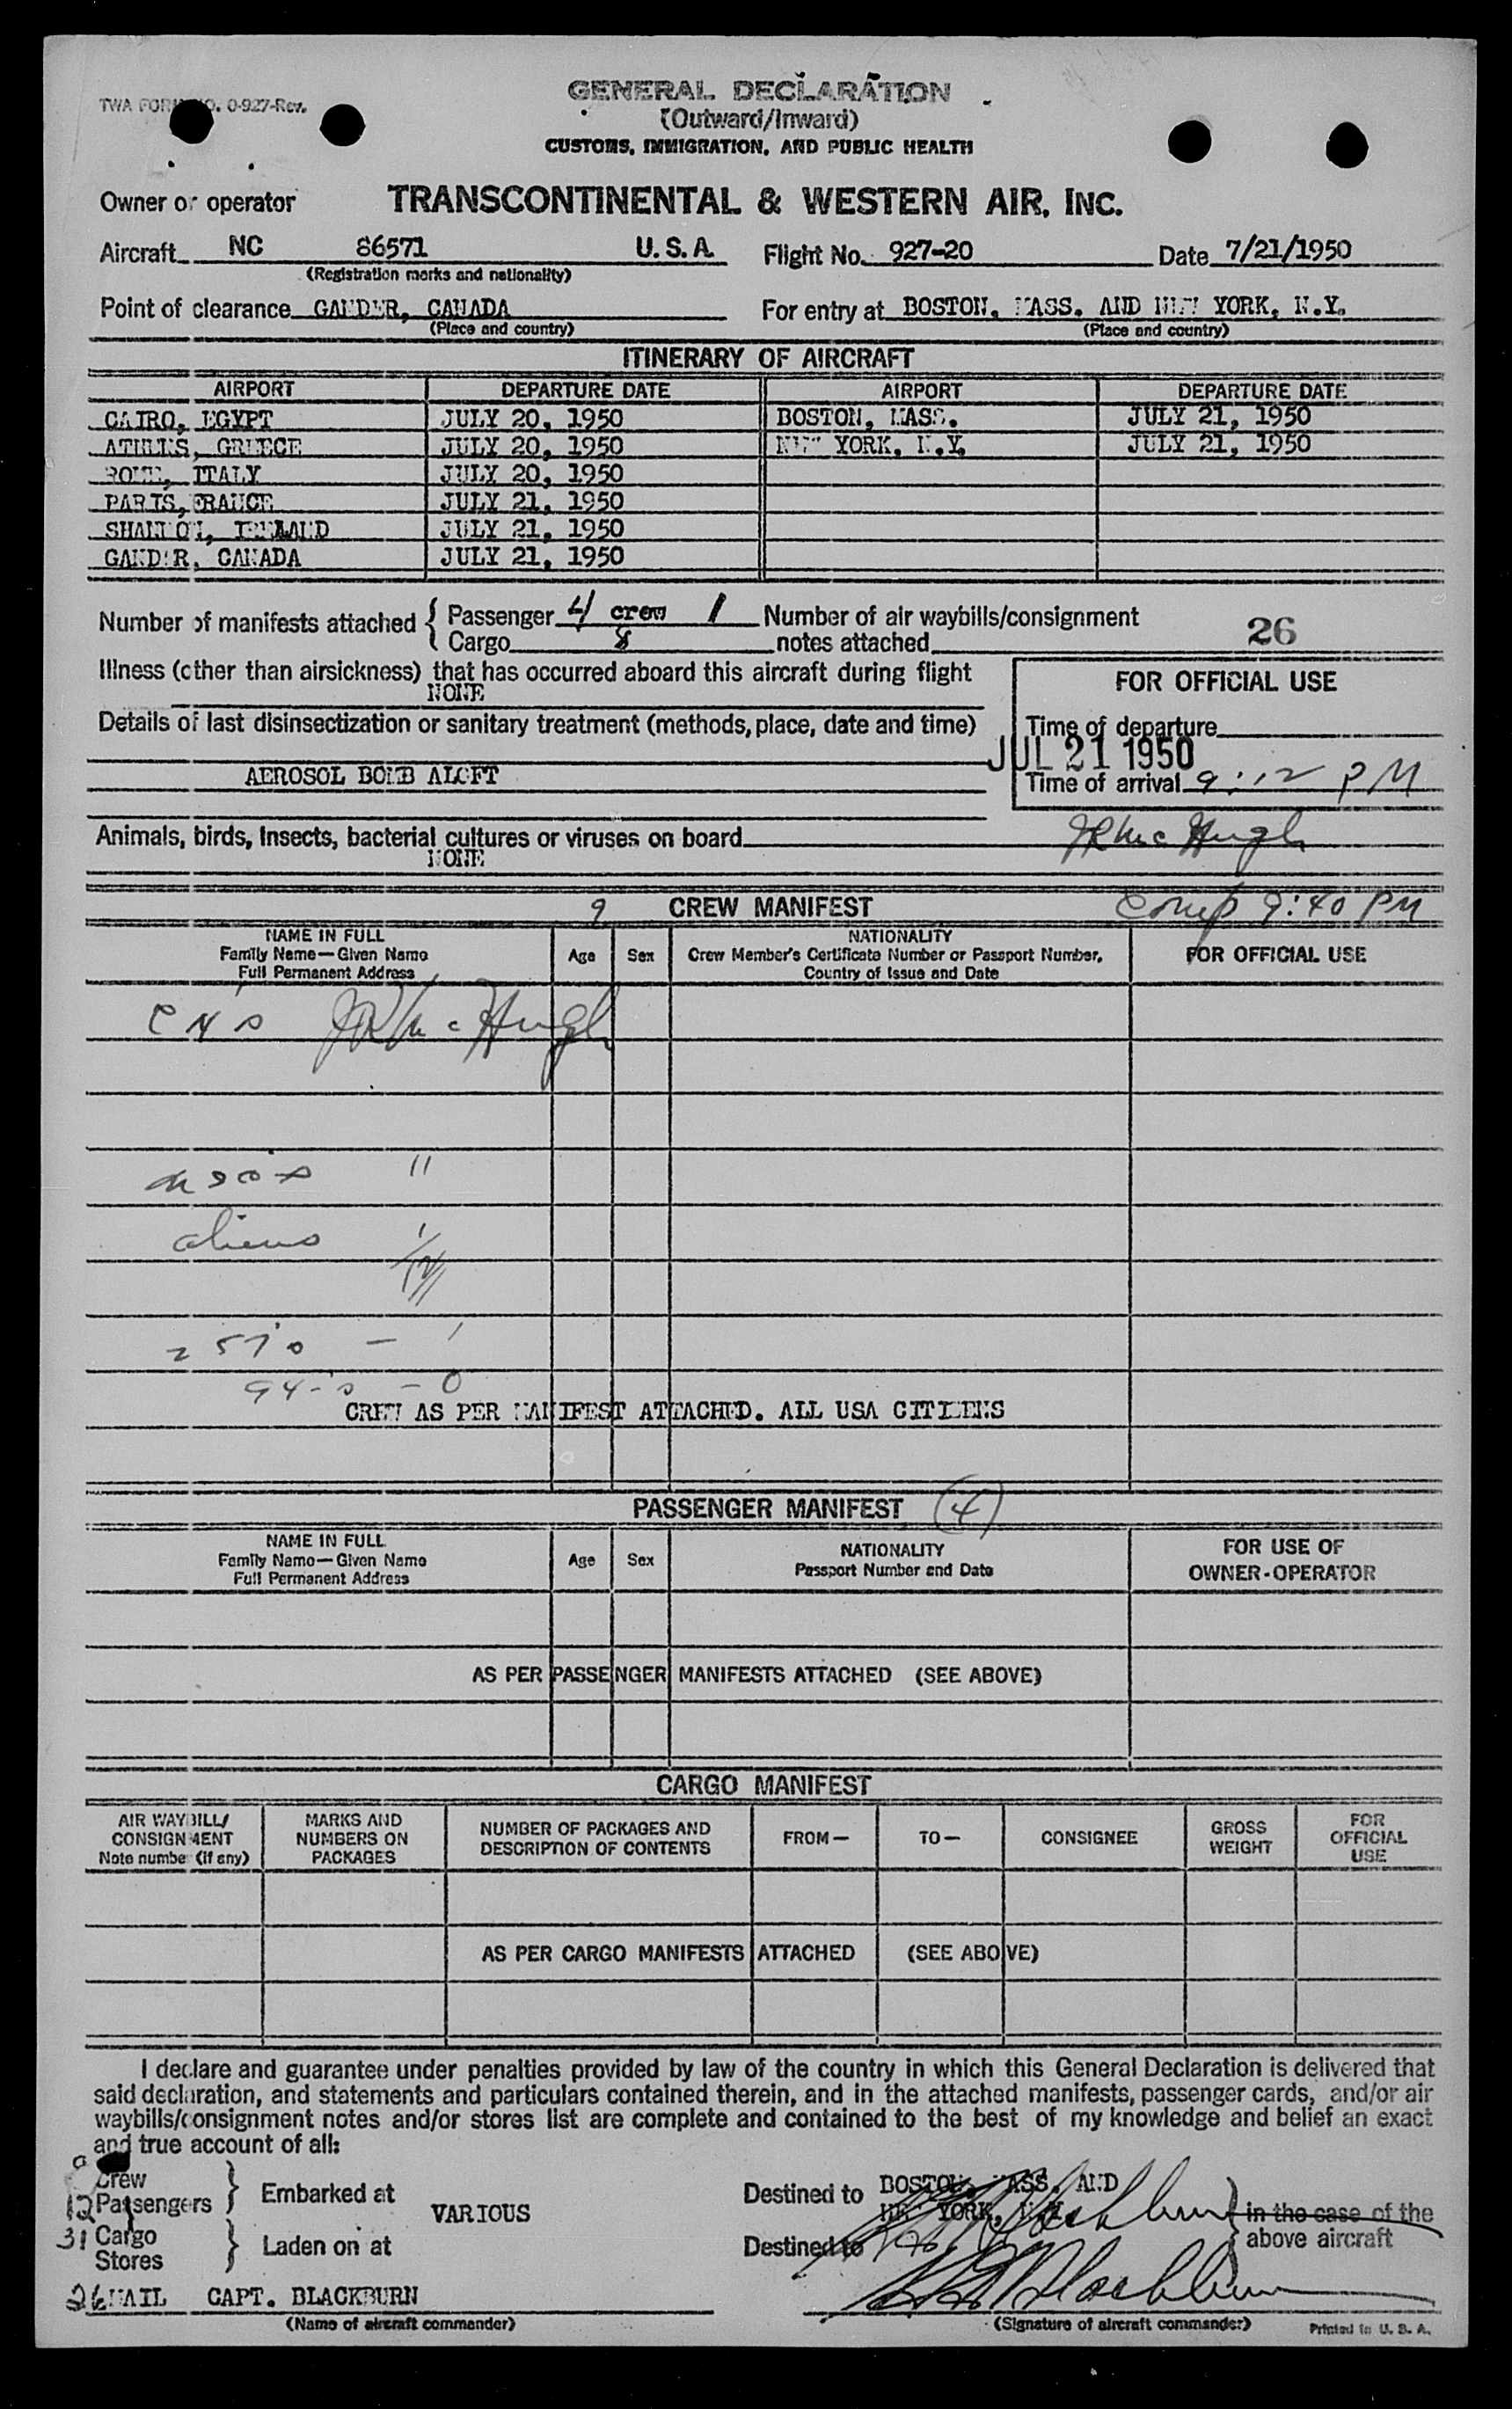 GENERAL DECLARATION
TWA FORM NO. 0-927-Rev.
(Outward/Inward)
CUSTOMS, IMMIGRATION, AND PUBLIC HEALTH
Owner or operator TRANSCONTINENTAL & WESTERN AIR, INC.
Aircraft NC 86571 U.S.A. Flight No. 927-20 Date 7/21/1950
(Registration marks and nationality)
Point of clearance GANDER, CANADA For entry at BOSTON, MASS. AND NEW YORK, N.Y.
(Place and country) (Place and country)
ITINERARY OF AIRCRAFT
AIRPORT DEPARTURE DATE AIRPORT DEPARTURE DATE
CAIRO, EGYPT JULY 20, 1950 BOSTON, MASS. JULY 21, 1950
ATHENS, GREECE JULY 20, 1950 NEW YORK, N.Y. JULY 21, 1950
ROME, ITALY JULY 20, 1950
PARIS, FRANCE JULY 21, 1950
SHANNON, IRELAND JULY 21, 1950
GANDER, CANADA JULY 21, 1950
Number of manifests attached { Passenger 4 crew 1 Number of air waybills/consignment
Cargo 8 notes attached 26
Illness (other than airsickness) that has occurred aboard this aircraft during flight
NONE
FOR OFFICIAL USE
Details of last disinsectization or sanitary treatment (methods, place, date and time)
Time of departure
JUL 21 1950
AEROSOL BOMB ALOFT
Time of arrival 9:12 PM
Animals, birds, insects, bacterial cultures or viruses on board JR McHugh
NONE
9 CREW MANIFEST Comp 9:40 PM
NAME IN FULL NATIONALITY
Family Name—Given Name Age Sex Crew Member's Certificate Number or Passport Number, FOR OFFICIAL USE
Full Permanent Address Country of Issue and Date
JR McHugh
11
aliens 1
257's - 1
94-'s - 0
CREW AS PER MANIFEST ATTACHED. ALL USA CITIZENS
PASSENGER MANIFEST (4)
NAME IN FULL NATIONALITY FOR USE OF
Family Name—Given Name Age Sex Passport Number and Date OWNER-OPERATOR
Full Permanent Address
AS PER PASSENGER MANIFESTS ATTACHED (SEE ABOVE)
CARGO MANIFEST
AIR WAYBILL/ MARKS AND NUMBER OF PACKAGES AND FROM— TO— CONSIGNEE GROSS FOR
CONSIGNMENT NUMBERS ON DESCRIPTION OF CONTENTS WEIGHT OFFICIAL
Note number (if any) PACKAGES USE
AS PER CARGO MANIFESTS ATTACHED (SEE ABOVE)
I declare and guarantee under penalties provided by law of the country in which this General Declaration is delivered that
said declaration, and statements and particulars contained therein, and in the attached manifests, passenger cards, and/or air
waybills/consignment notes and/or stores list are complete and contained to the best of my knowledge and belief an exact
and true account of all:
9 Crew
12 Passengers } Embarked at VARIOUS Destined to BOSTON, MASS. AND
NEW YORK, N.Y. } in the case of the
31 Cargo
Stores } Laden on at Destined to above aircraft
26 MAIL CAPT. BLACKBURN Blackburn
(Name of aircraft commander) (Signature of aircraft commander)
Printed in U. S. A.